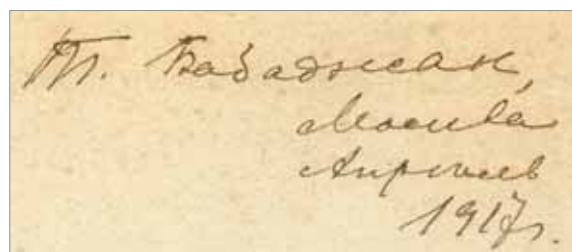 Т. Бабаджан,
Москва
Апрель
1917 г.